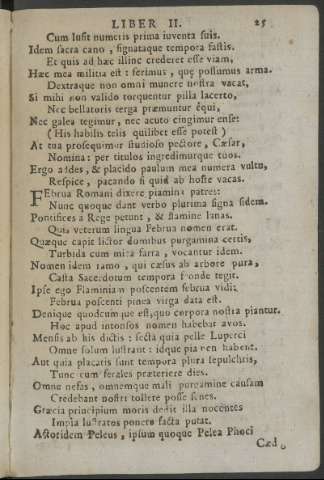 LIBER II. 25
Cum lusit numeris prima iuventa suis.
Idem sacra cano, signataque tempora fastis.
Et quis ad hæc illinc crederet esse viam,
Hæc mea militia est: ferimus, quę possumus arma.
Dextraque non omni munere nostra vacat,
Si mihi non valido torquentur pilla lacerto,
Nec bellatoris terga præmuntur equi,
Nec galea tegimur, nec acuto cingimur ense:
(His habilis telis quilibet esse potest)
At tua prosequimur studioso pectore, Cæsar,
Nomina: per titulos ingredimurque tuos.
Ergo ades, & placido paulum mea numera vultu,
Respice, pacando si quid ab hoste vacas.
Februa Romani dixere piamina patres:
Nunc quoque dant verbo plurima signa fidem.
Pontifices a Rege petunt, & flamine lanas.
Quis veterum lingua Februa nomen erat.
Quæque capit lictor domibus purgamina certis,
Turbida cum mica farra, vocantur idem.
Nomen idem ramo, qui cæsus ab arbore pura,
Casta Sacerdotum tempora fronde tegit.
Ipse ego Flaminiam poscentem februa vidi:
Februa poscenti pinea virga data est.
Denique quodcumque est, quo corpora nostra piantur.
Hoc apud intonsos nomen habebat avos.
Mensis ab his dictis: secta quia pelle Luperci
Omne solum lustrant: idque piamen habent.
Aut quia placatis sunt tempora plura sepulchris,
Tunc cum ferales præteriere dies.
Omne nefas, omnemque mali purgamine causam
Credebant nostri tollere posse senes.
Græcia principium moris dedit illa nocentes
Impia lustratos ponere facta putat.
Actoridem Peleus, ipsum quoque Pelea Phoci
Cæd